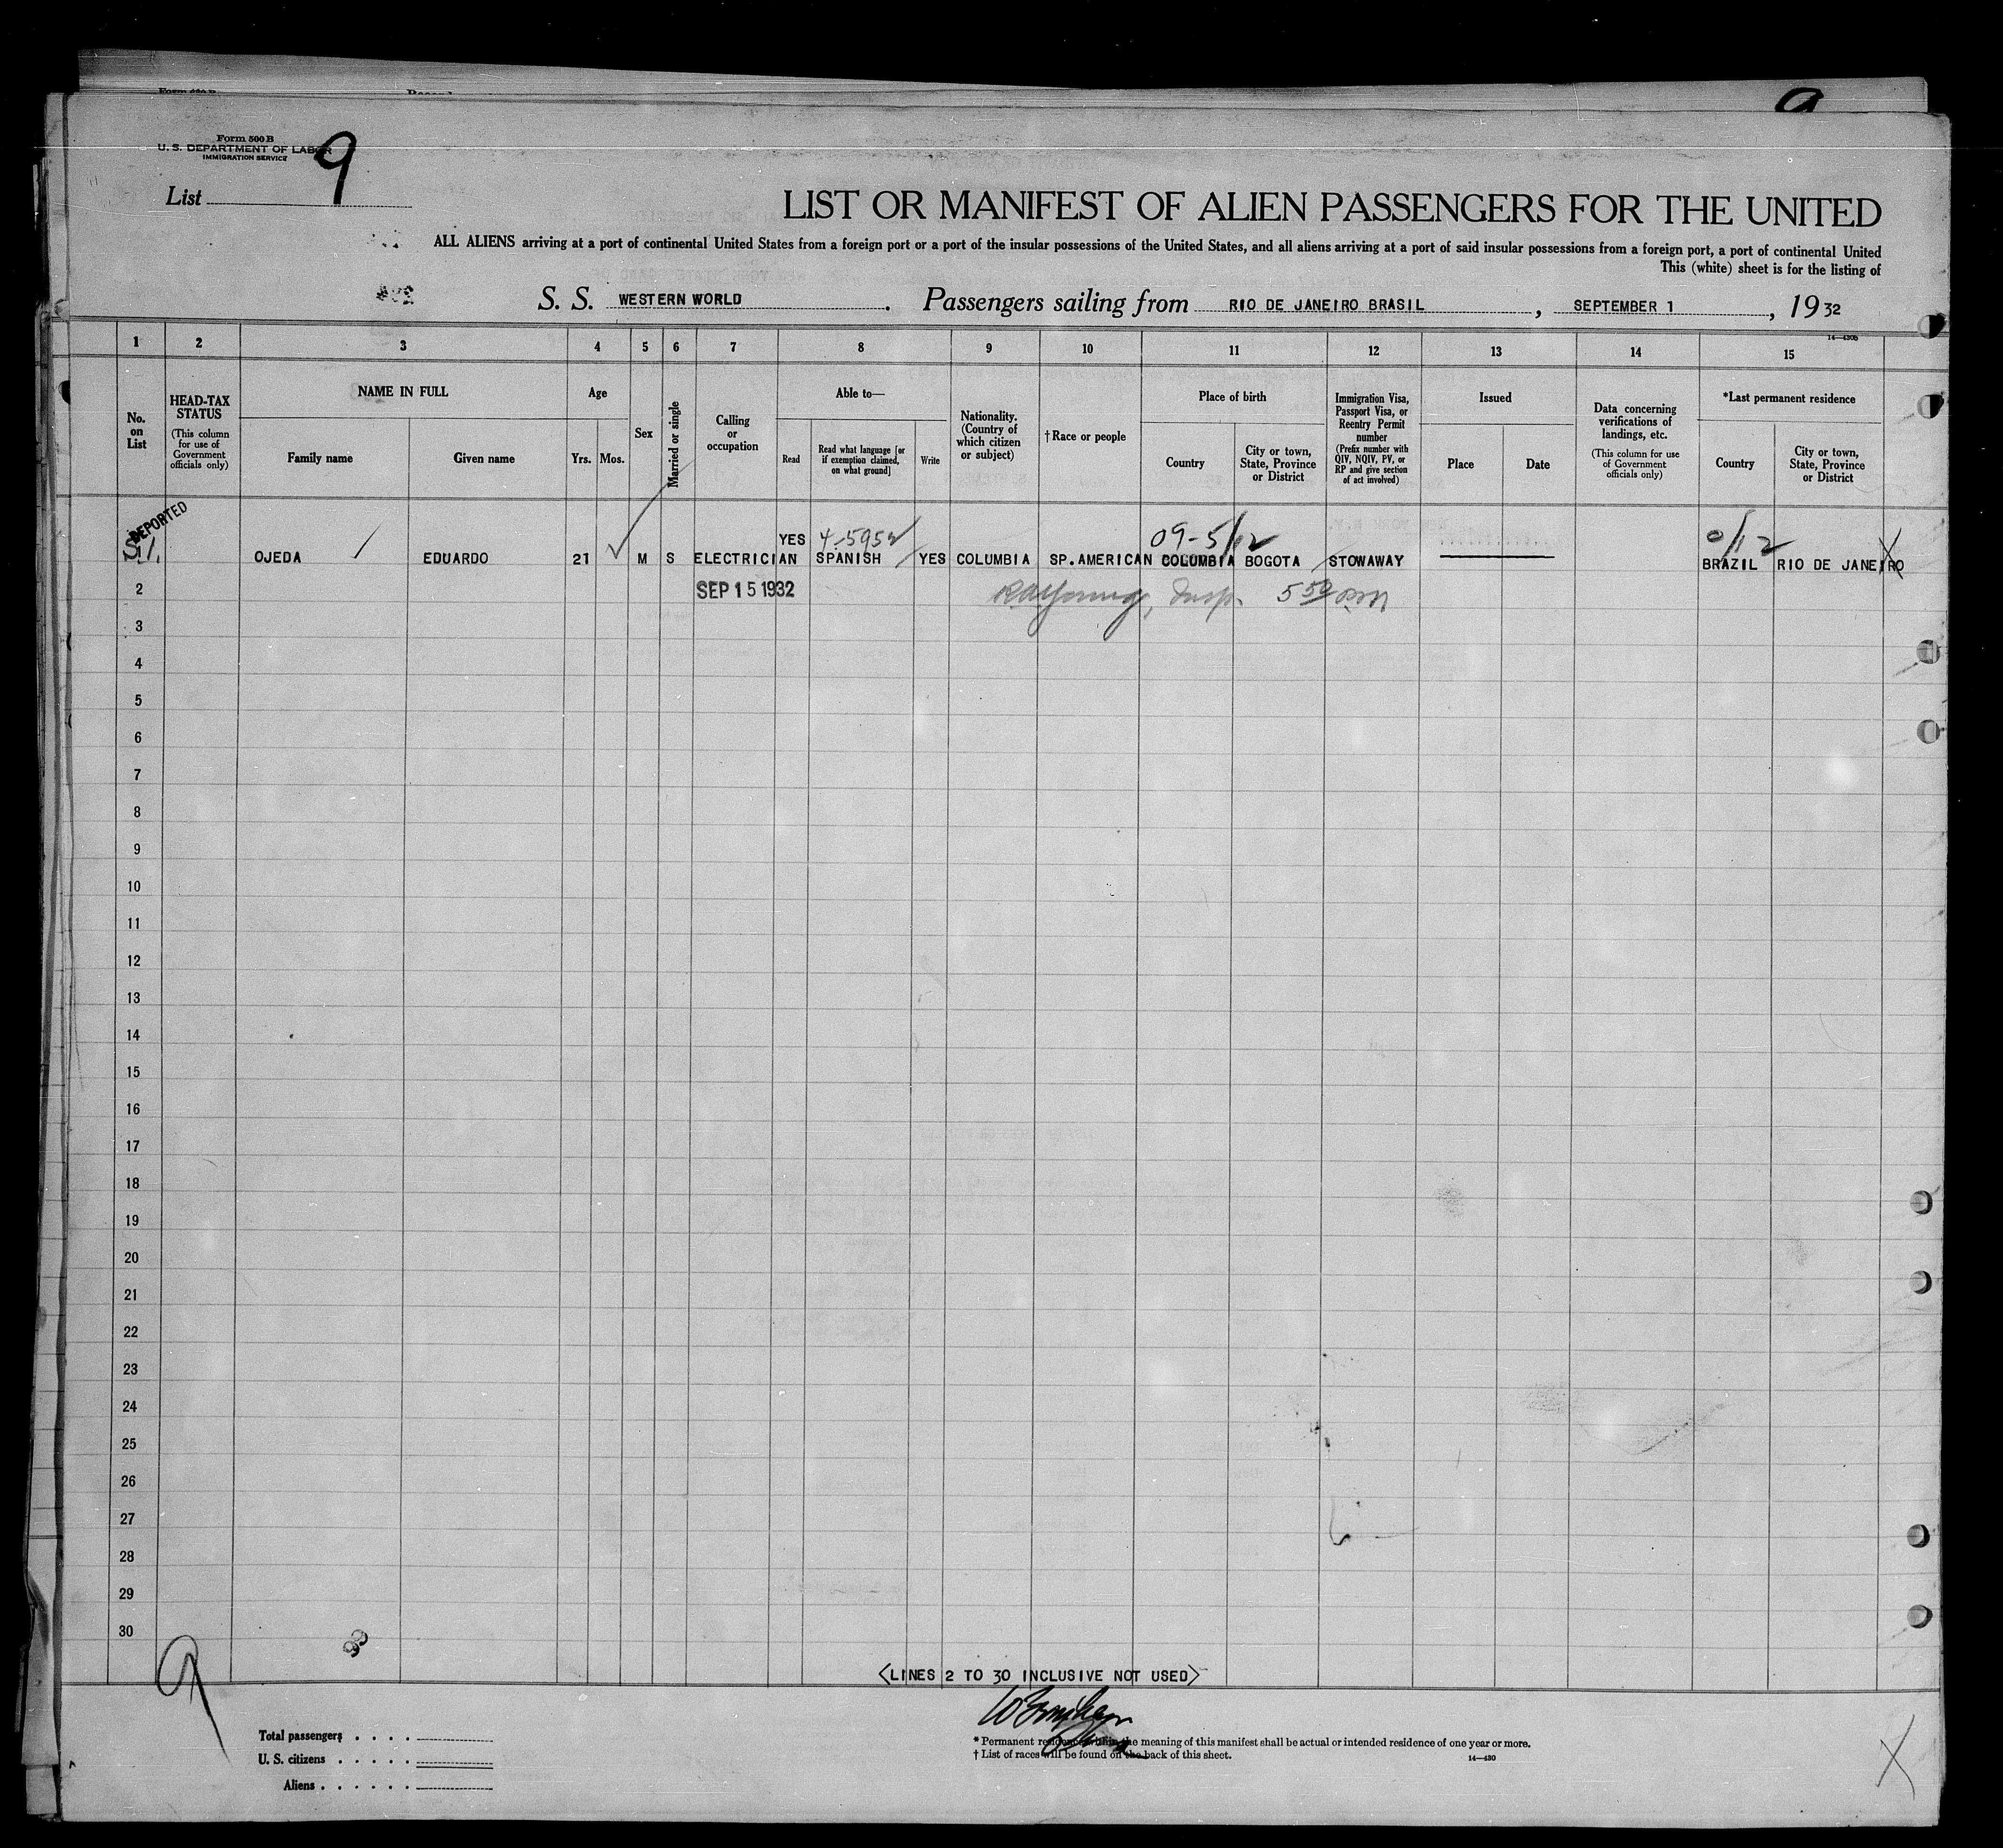 Form 500 B
U. S. DEPARTMENT OF LABOR
IMMIGRATION SERVICE
9
List
LIST OR MANIFEST OF ALIEN PASSENGERS FOR THE UNITED
ALL ALIENS arriving at a port of continental United States from a foreign port or a port of the insular possessions of the United States, and all aliens arriving at a port of said insular possessions from a foreign port, a port of continental United
This (white) sheet is for the listing of
S. S. WESTERN WORLD. Passengers sailing from RIO DE JANEIRO BRASIL, SEPTEMBER 1, 1932
1 2 3 4 5 6 7 8 9 10 11 12 13 14 15
No. on List
HEAD-TAX STATUS
(This column for use of Government officials only)
NAME IN FULL
Family name
Given name
Age
Yrs.
Mos.
Sex
Married or single
Calling or occupation
Able to—
Read
Read what language [or if exemption claimed, on what ground]
Write
Nationality. (Country of which citizen or subject)
†Race or people
Place of birth
Country
City or town, State, Province or District
Immigration Visa, Passport Visa, or Reentry Permit number
(Prefix number with QIV, NQIV, PV, or RP and give section of act involved)
Issued
Place
Date
Data concerning verifications of landings, etc.
(This column for use of Government officials only)
*Last permanent residence
Country
City or town, State, Province or District
DEPORTED
09-5/12
0/12
1 OJEDA EDUARDO 21 M S ELECTRICIAN YES SPANISH YES COLUMBIA SP.AMERICAN COLUMBIA BOGOTA STOWAWAY BRAZIL RIO DE JANEIRO
2 SEP 15 1932 Insp. 5 50 pm
3
4
5
6
7
8
9
10
11
12
13
14
15
16
17
18
19
20
21
22
23
24
25
26
27
28
29
30
9
(LINES 2 TO 30 INCLUSIVE NOT USED)
Total passengers
U. S. citizens
Aliens
* Permanent residence within the meaning of this manifest shall be actual or intended residence of one year or more.
† List of races will be found on the back of this sheet.
14—430